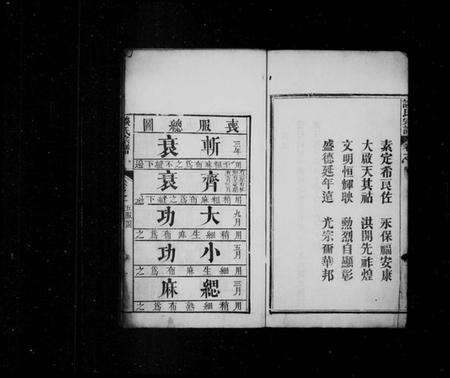 素定希良佐　永保福安康
大啟天其祐　洪開先祚煌
文明恒輝映　勲烈自顯彰
盛德延年遠　光宗爾華邦
喪服總圖
斬衰
三年
用至麤麻布為之不縫下邊
齊衰
用稍麤麻布為之縫下邊
大功
九月
用麤生麻布為之
小功
五月
用細生麻布為之
緦麻
三月
用稍細熟布為之